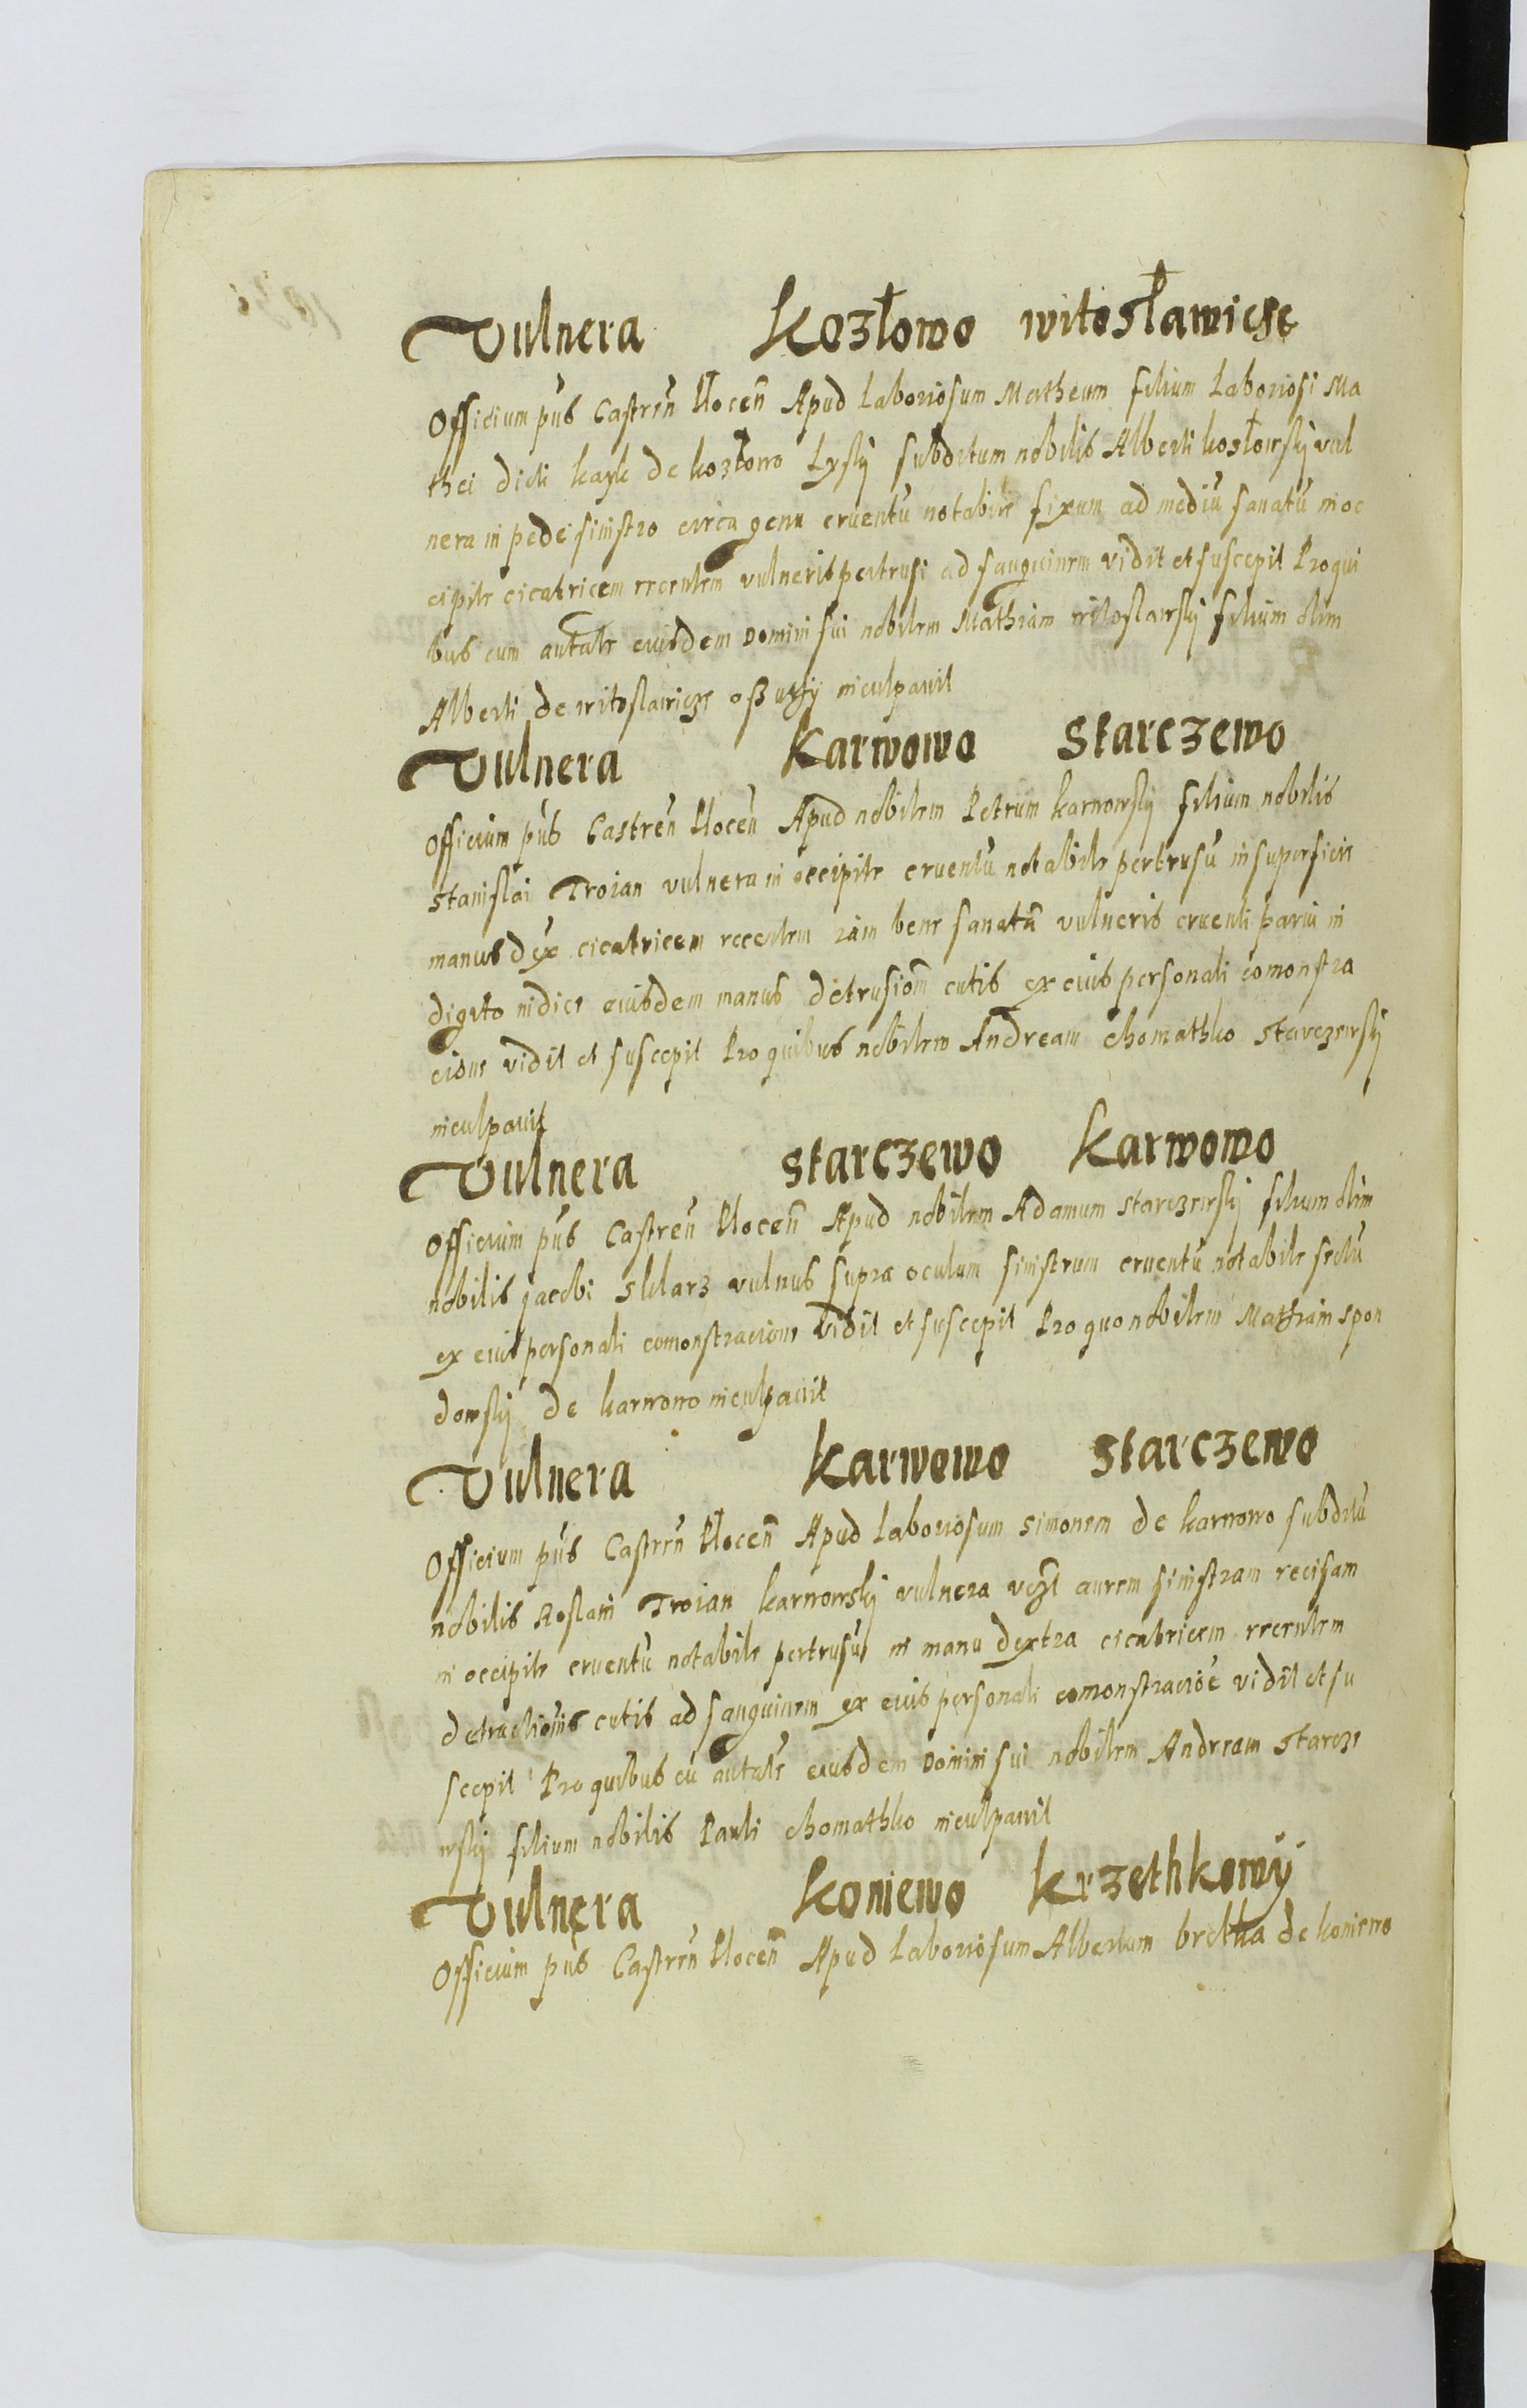 Vulnera Kozłowo witosławicze
Officium pūs Castren̄ Płocen̄ Apud Laboriosum Matheum filium Laboriosi Ma
thei dicti kayk de kozłowo Lysky subditum nobilis Alberti kozłowsky vul
nera in pede sinistro circa genu cruentū notabile fixum ad mediū sanatū in oc
cipite cicatricem recentem vulneris pertrusi ad sanguinem vidit et suscepit Pro qui
bus cum autãte eiusdem Domini sui nobilem Mathiam witoslawsky filium olim
Alberti de witoslawicze inculpavit
Vulnera Karwowo Starczewo
Officium pūs Castren̄ Płocen̄ Apud nobilem Petrum karwowsky filium nobilis
Stanislai Troian vulnera in occipite cruentū notabile pertrusū in superficie
manus dex cicatricem recentem iam bene sanatā vulneris cruenti parui in
digito indice eiusdem manus detrusiom̄ cutis ex eius personali comonstra
cione vidit et suscepit Pro quibus nobilem Andream chomathko Starczewsky
inculpavit
Vulnera Starczewo Karwowo
Officium pūs Castren̄ Płocen̄ Apud nobilem Adamum Starczewsky filium olim
nobilis jacobi Sklarz vulnus supra oculum sinistrum cruentū notabile sectū
ex eius personali comonstracione vidit et suscepit Pro quo nobilem Mathiam spon
dowsky de karwowo inculpavit
Vulnera Karwowo Starczewo
Officium pūs Castren̄ Płocen̄ Apud Laboriosum Simonem de karwowo subditū
nobilis Troian karwowsky vulnera vczt aurem sinistram recisam
in occipite cruentū notabile pertrusū in manu dextra cicatricem recentem
detractionis cutis ad sanguinem ex eius personali comonstracioē vidit et su
scepit Pro quibus cū autãte eiusdem Domini sui nobilem Andream Starcze
wsky filium nobilis Pauli chomathko inculpavit
Vulnera Koniewo Krzethkowy
Officium pūs Castren̄ Płocen̄ Apud Laboriosum Albertum brethka de koniewo